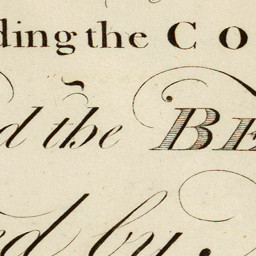 ding the CO
d the BE
ed by